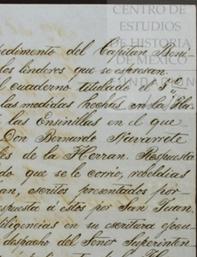 CENTRO DE
ESTUDIOS
DE HISTORIA
DE MÉXICO
FUNDACIÓN
cedimento del Capitan
los linderos que se espresan.
l cuaderno titulado el 3.º
las medidas hechas en la Ha
las Ensinillas en el que
Don Bernardo Navarrete
les de la Herran. Respuesta
do que se le corrió, rebeldias
an, escritos presentados por
spuesta á estos por San Juan,
iligencias en su escritura
dispacho del Señor Superinten